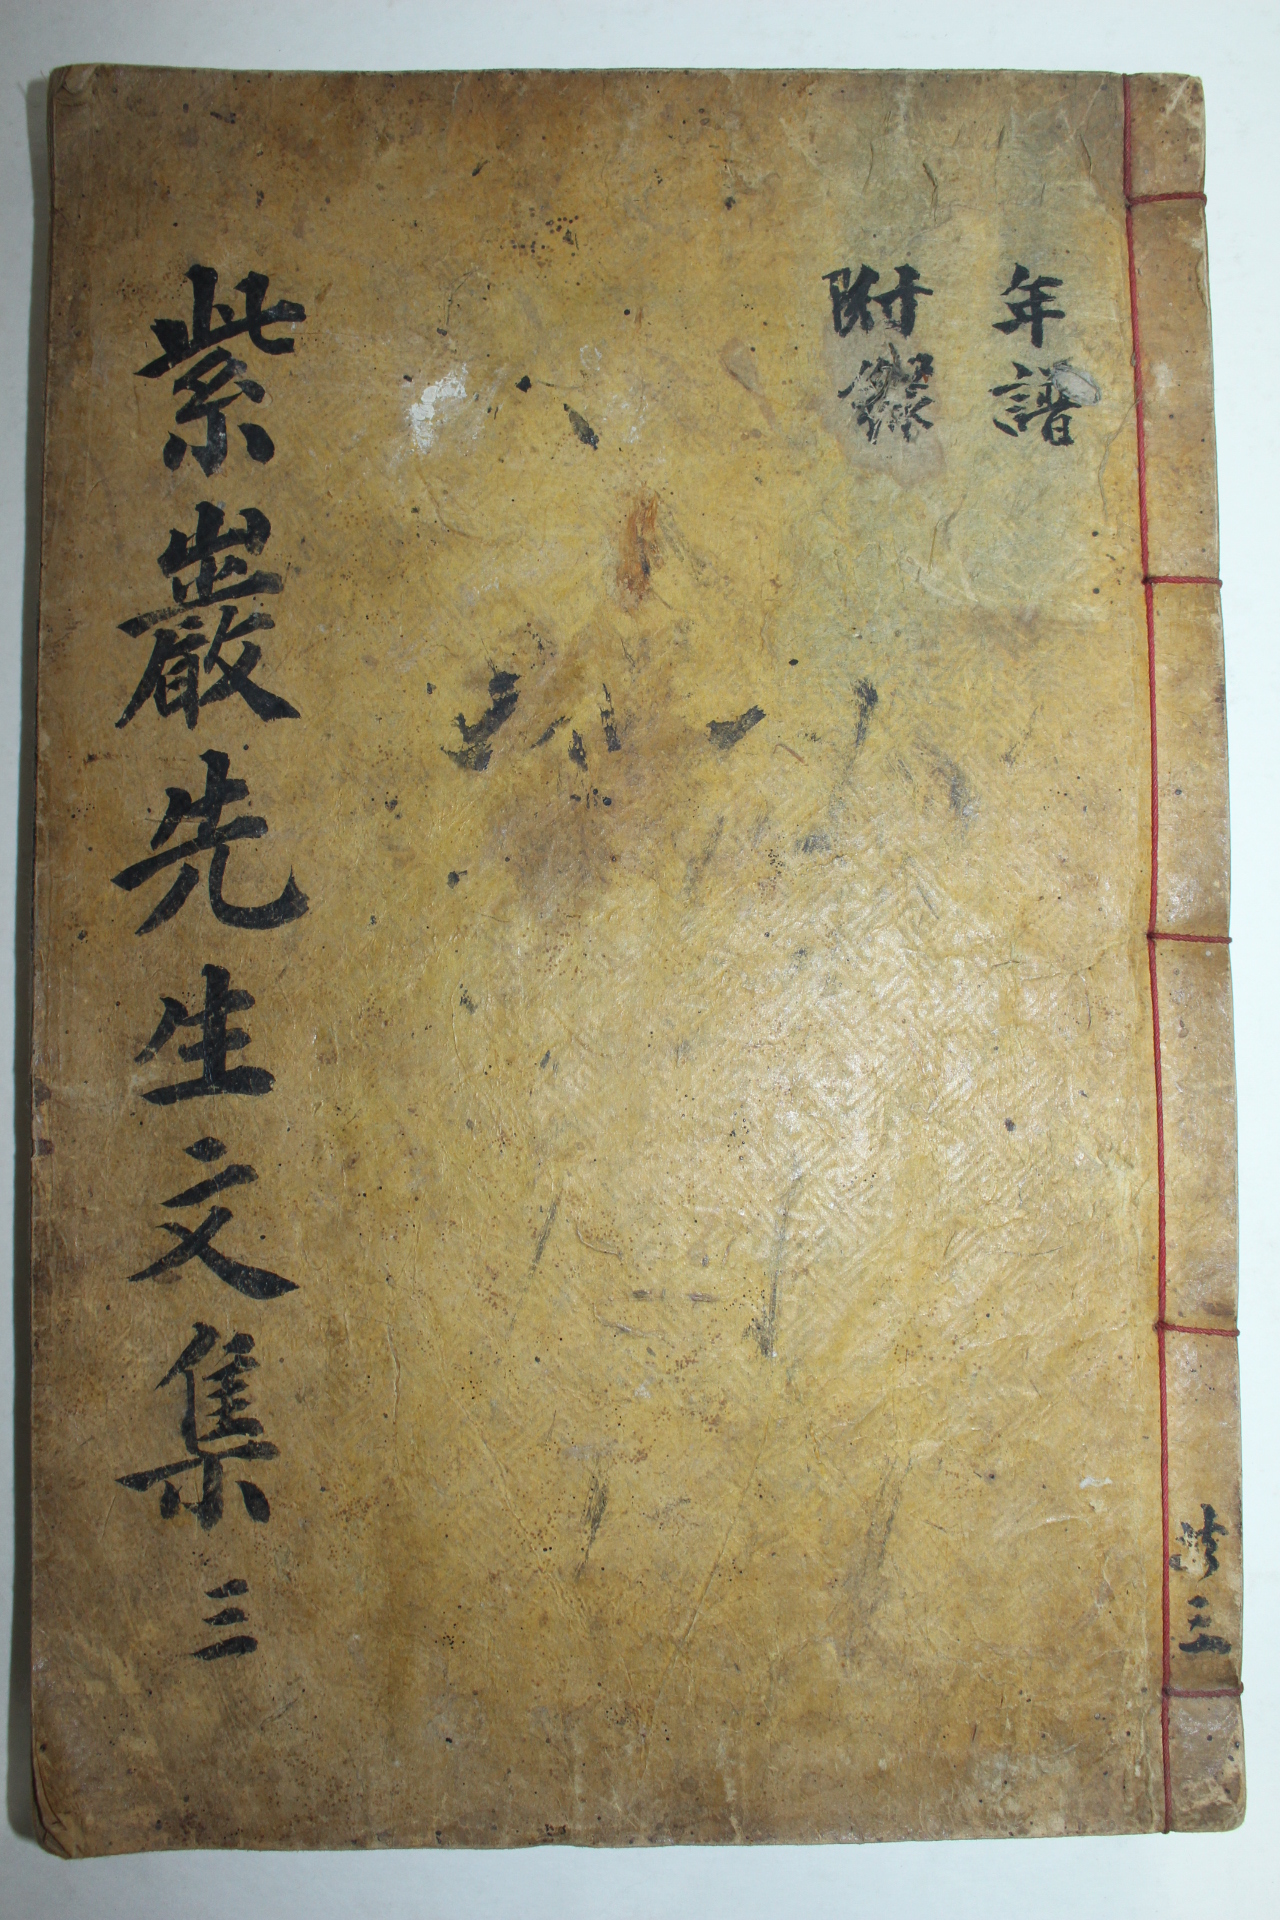 年譜
附錄
紫巖先生文集 三
共三